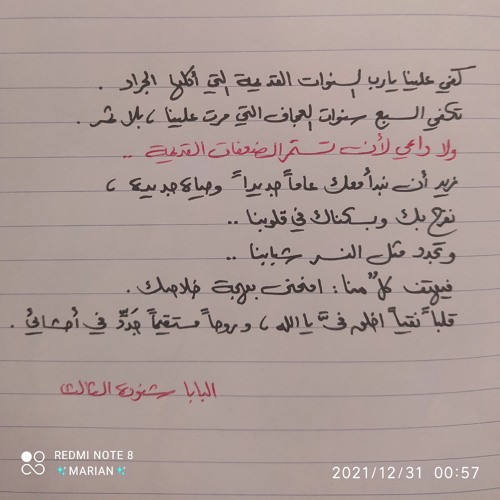 كفي علينا يارب السنوات القديمة التي أكلها الجراد .
تكفي السبع سنوات العجاف التي مرت علينا ، بلا ثمر .
ولا داعي لأن تستمر الضعفات القديمة ..
نريد أن نبدأ معك عاماً جديداً وحياة جديدة ،
نفرح بك وبسكناك في قلوبنا ..
وتجدد مثل النسر شبابنا ..
فيهتف كلٌ منا : امنحنى بهجة خلاصك .
قلباً نقياً اخلق فىَّ يا الله ، وروحاً مستقيماً جَدِّد في أحشائيُ .
البابا شنودة الثالث
REDMI NOTE 8
MARIAN
2021/12/31 00:57